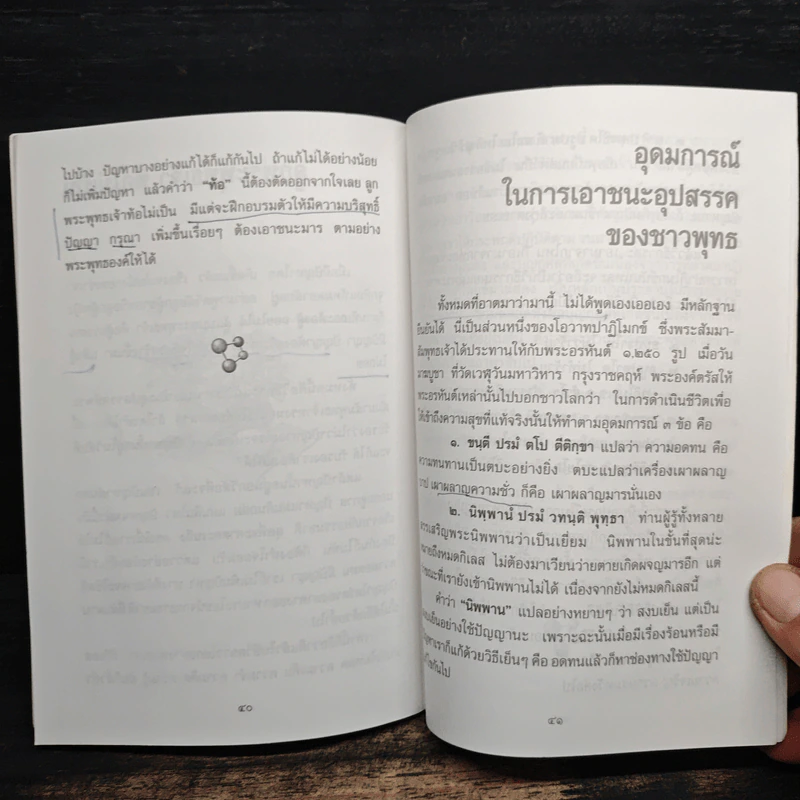 ไปบ้าง ปัญหาบางอย่างแก้ได้ก็แก้กันไป ถ้าแก้ไม่ได้อย่างน้อย
ก็ไม่เพิ่มปัญหา แล้วคำว่า “ท้อ” นี้ต้องตัดออกจากใจเลย ลูก
พระพุทธเจ้าท้อไม่เป็น มีแต่จะฝึกอบรมตัวให้มีความบริสุทธิ์
ปัญญา กรุณา เพิ่มขึ้นเรื่อยๆ ต้องเอาชนะมาร ตามอย่าง
พระพุทธองค์ให้ได้
๔๐
อุดมการณ์
ในการเอาชนะอุปสรรค
ของชาวพุทธ
ทั้งหมดที่อาตมาว่ามานี้ ไม่ได้พูดเองเออเอง มีหลักฐาน
ยืนยันได้ นี่เป็นส่วนหนึ่งของโอวาทปาฏิโมกข์ ซึ่งพระสัมมา-
สัมพุทธเจ้าได้ประทานให้กับพระอรหันต์ ๑,๒๕๐ รูป เมื่อวัน
มาฆบูชา ที่วัดเวฬุวันมหาวิหาร กรุงราชคฤห์ พระองค์ตรัสให้
พระอรหันต์เหล่านั้นไปบอกชาวโลกว่า ในการดำเนินชีวิตเพื่อ
ให้เข้าถึงความสุขที่แท้จริงนั้นให้ทำตามอุดมการณ์ ๓ ข้อ คือ
๑. ขนฺตี ปรมํ ตโป ตีติกฺขา แปลว่า ความอดทน คือ
ความทนทานเป็นตบะอย่างยิ่ง ตบะแปลว่าเครื่องเผาผลาญ
เผาผลาญความชั่ว ก็คือ เผาผลาญมารนั่นเอง
๒. นิพฺพานํ ปรมํ วทนฺติ พุทฺธา ท่านผู้รู้ทั้งหลาย
สรรเสริญพระนิพพานว่าเป็นเยี่ยม นิพพานในขั้นที่สุดน่ะ
หมายถึงหมดกิเลส ไม่ต้องมาเวียนว่ายตายเกิดผจญมารอีก แต่
ขณะที่เรายังเข้านิพพานไม่ได้ เนื่องจากยังไม่หมดกิเลสนี้
คำว่า “นิพพาน” แปลอย่างหยาบๆ ว่า สงบเย็น แต่เป็น
สงบเย็นอย่างใช้ปัญญานะ เพราะฉะนั้นเมื่อมีเรื่องร้อนหรือมี
ปัญหาเราก็แก้ด้วยวิธีเย็นๆ คือ อดทนแล้วก็หาช่องทางใช้ปัญญา
กันไป
๔๑